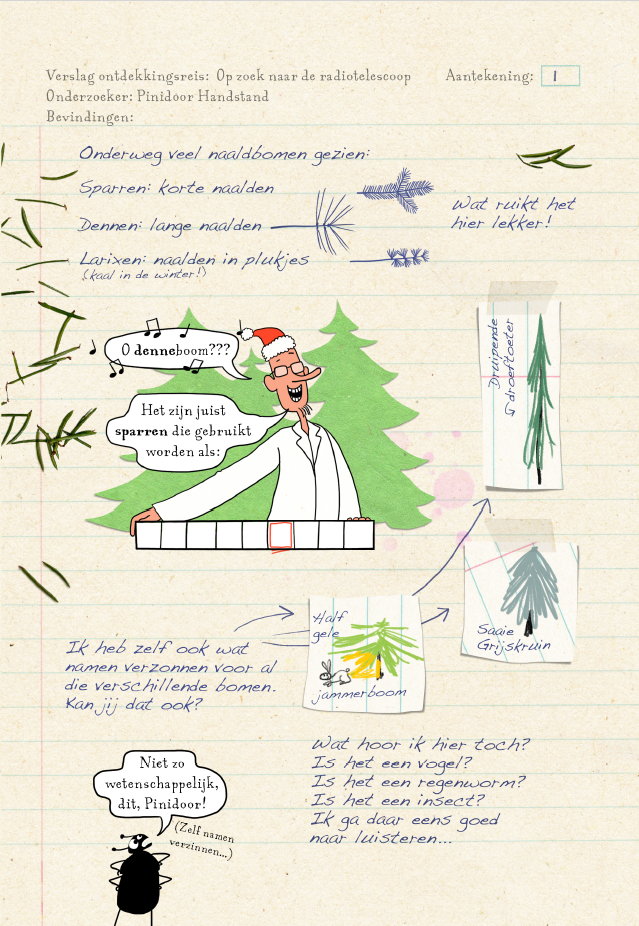 Verslag ontdekkingsreis: Op zoek naar de radiotelescoop
Aantekening: 1
Onderzoeker: Pinidoor Handstand
Bevindingen:
Onderweg veel naaldbomen gezien:
Sparren: korte naalden
Dennen: lange naalden
Larixen: naalden in plukjes
(kaal in de winter!)
Wat ruikt het
hier lekker!
O denneboom???
Het zijn juist
sparren die gebruikt
worden als:
Druipende
droeftoeter
Saaie
Grijskruin
Half
gele
jammerboom
Ik heb zelf ook wat
namen verzonnen voor al
die verschillende bomen.
Kan jij dat ook?
Niet zo
wetenschappelijk,
dit, Pinidoor!
(Zelf namen
verzinnen...)
Wat hoor ik hier toch?
Is het een vogel?
Is het een regenworm?
Is het een insect?
Ik ga daar eens goed
naar luisteren...